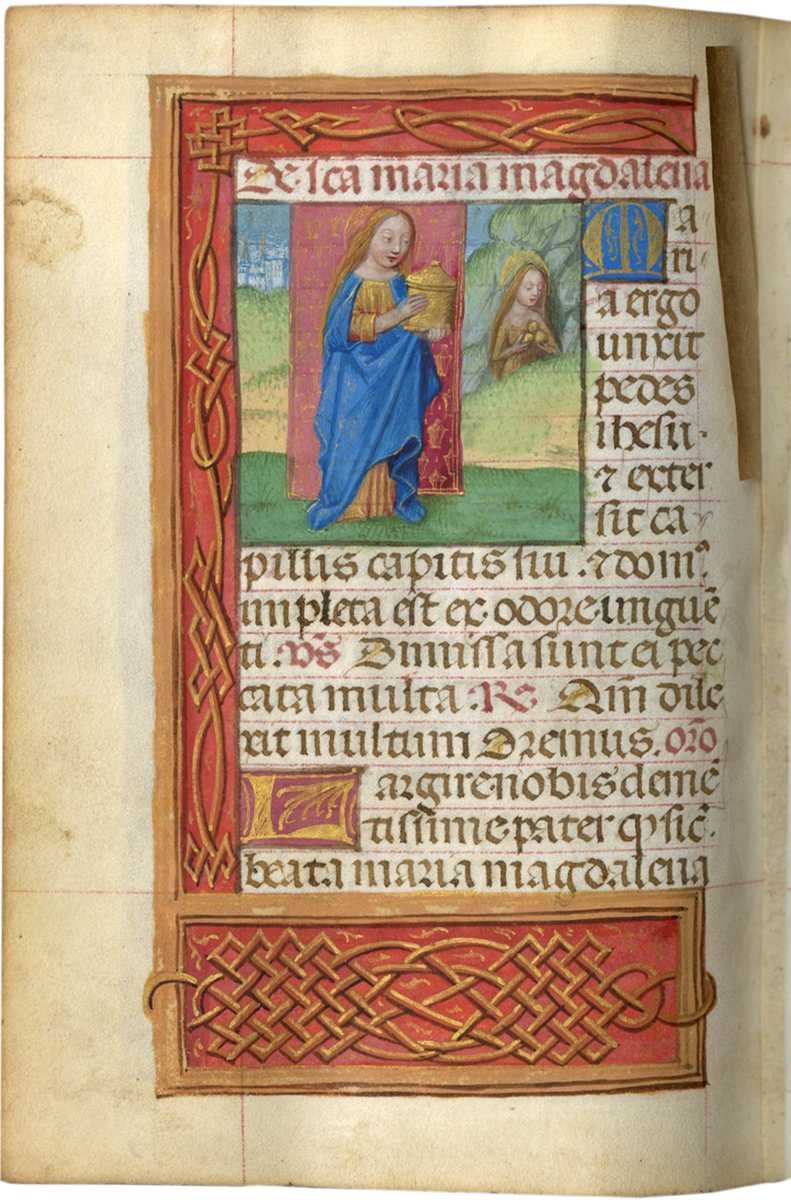 De sc̄a maria magdalena
Ma
ri
a ergo
unxit
pedes
ihesu.
⁊ exter
sit ca
pillis capitis sui . ⁊ domꝰ
impleta est ex odore unguē
ti . v̄s Dimissa sunt ei pec
cata multa . Re Qm̄ dile
xit multum Oremus. or̄o
Largire nobis clemē
tissime pater qͥ sic̄.
beata maria magdalena